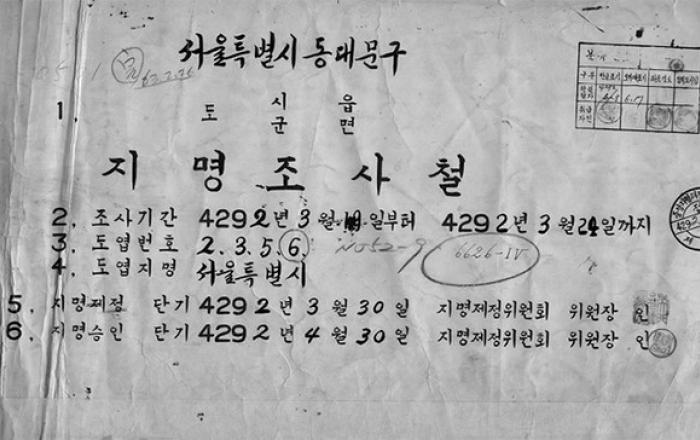 서울특별시 동대문구
1. 도 시 읍
군 면
지명조사철
2. 조사기간 4292년 3월 일부터 4292년 3월 24일까지
3. 도엽번호 2. 3. 5. 6. N052-9 6626-IV
4. 도엽지명 서울특별시
5. 지명제정 단기 4292년 3월 30일 지명제정위원회 위원장 인
6. 지명승인 단기 4292년 4월 30일 지명제정위원회 위원장 인